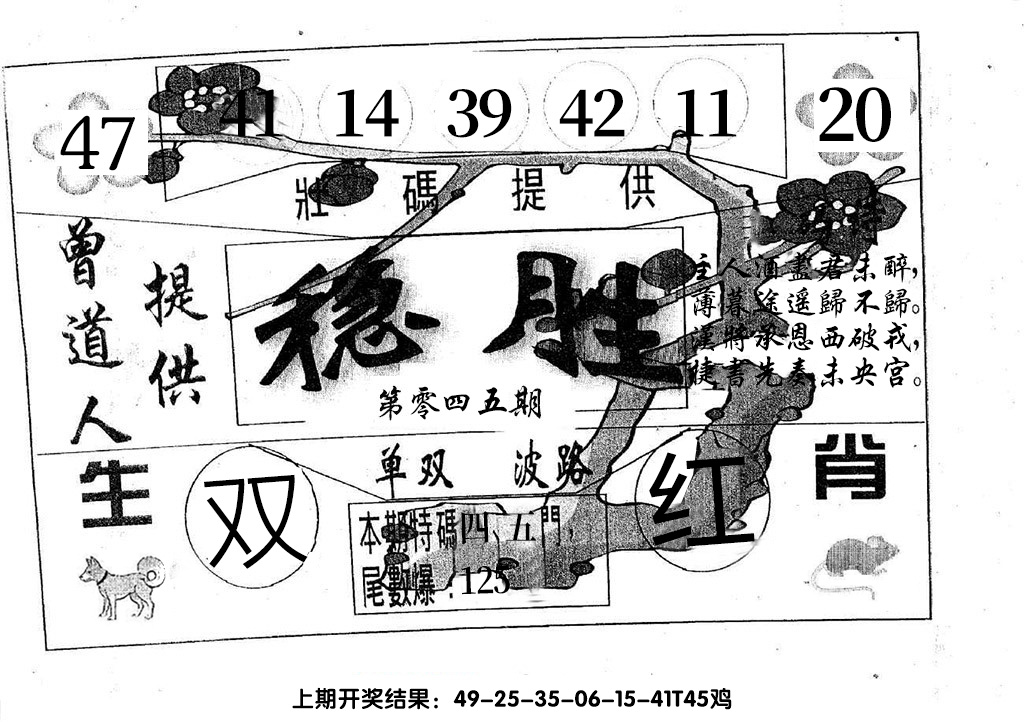 47 41 14 39 42 11 20
壯碼提供
特
曾道人
提供
稳胜
第零四五期
主人酒盡君未醉，
薄暮途遥歸不歸。
漢將承恩西破戎，
捷書先奏未央宫。
单双 波路
生
双
红
肖
本期特碼四、五門，
尾數爆：125
上期开奖结果：49-25-35-06-15-41T45鸡